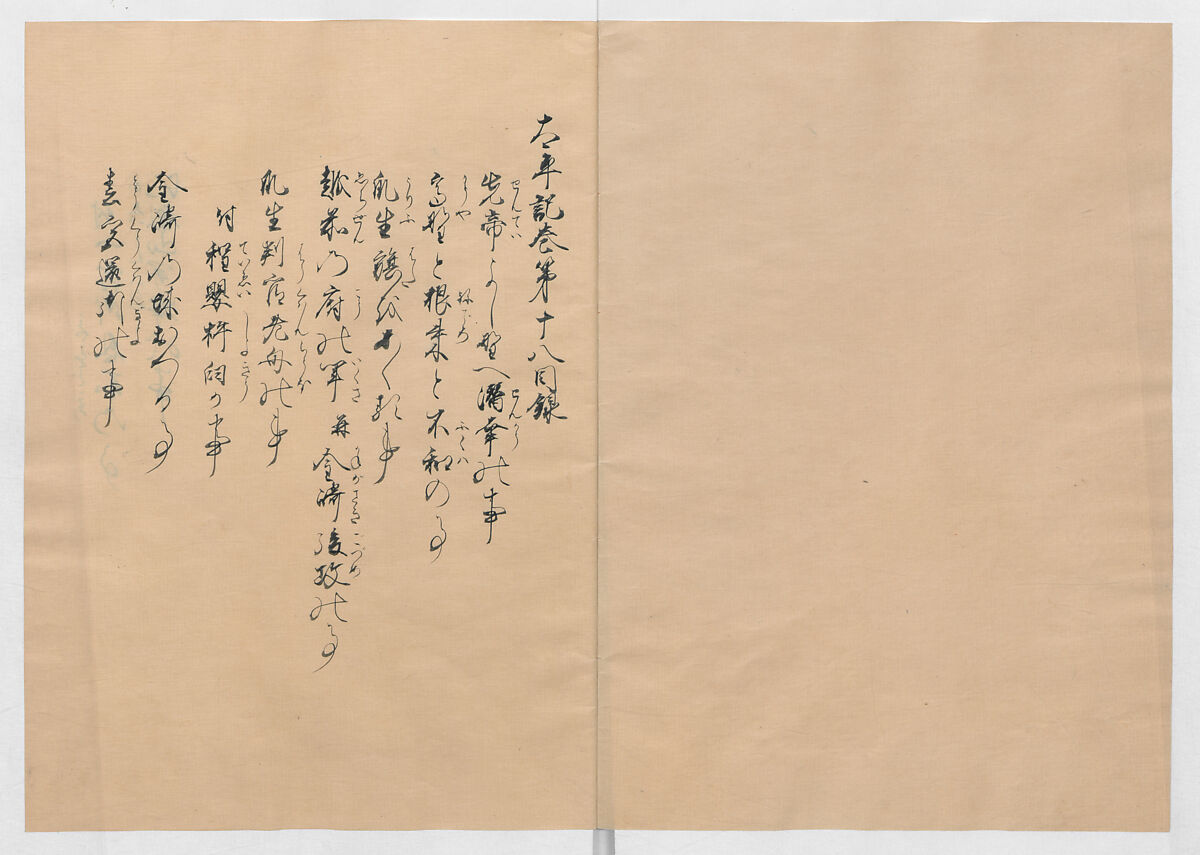 太平記巻第十八目録
先帝よし野へ潜幸の事
高野と根来と不和の事
瓜生籏をあくる事
越前の府の軍 并 金崎後攻の事
瓜生判官老母の事
付程嬰杵臼か事
金崎の城おつる事
春宮還御の事